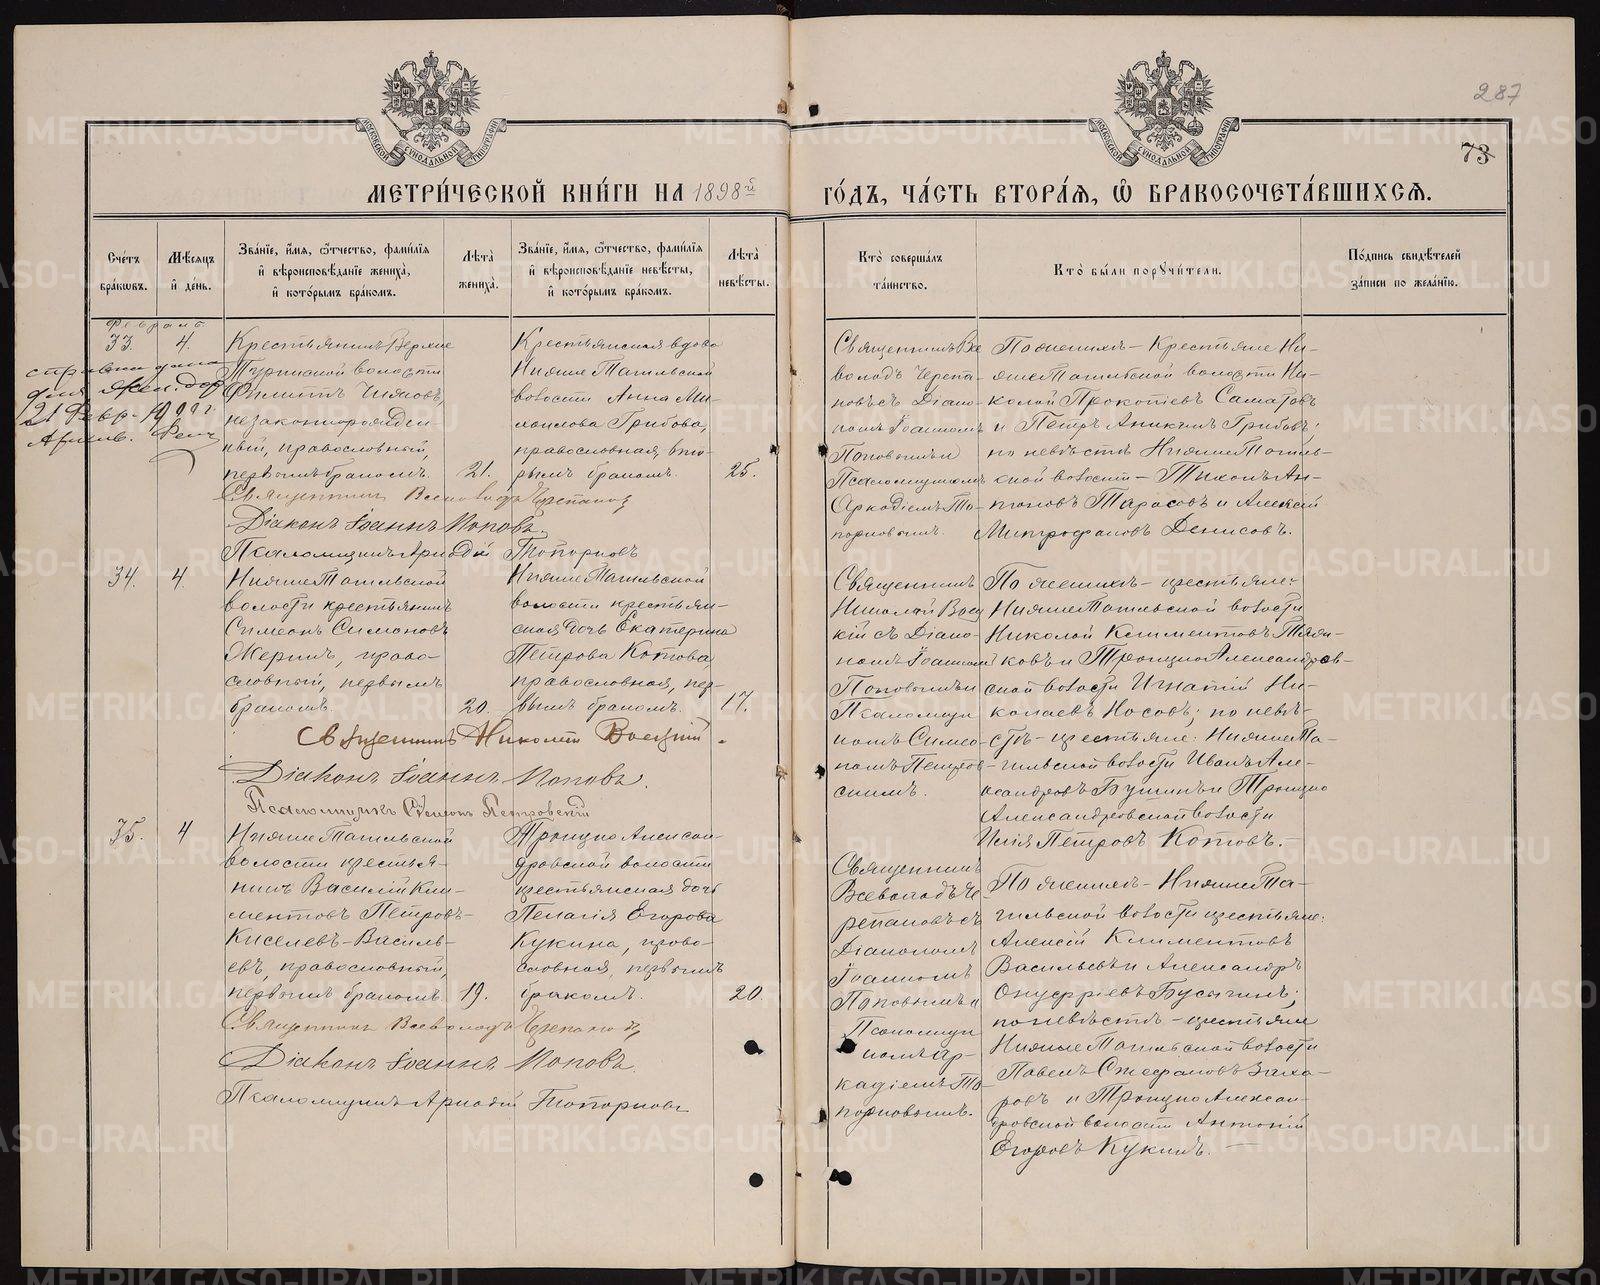 287
73
МОСКОВСКОЙ СѴНОДАЛЬНОЙ ТИПОГРАФІИ
МОСКОВСКОЙ СѴНОДАЛЬНОЙ ТИПОГРАФІИ
МЕТРИ́ЧЕСКОЙ КНИ́ГИ НА 1898й ГО́ДЪ, ЧА́СТЬ ВТОРА́Я, Ѽ БРАКОСОЧЕТА́ВШИХСЯ.
Сче́тъ бра́кѡвъ.
Мѣ́сяцъ и҆ де́нь.
Зва́нїе, и҆́мя, ѻ҆́тчество, фами́лїя и҆ вѣроисповѣ́данїе жениха̀, и҆ кото́рымъ бра́комъ.
Лѣ́та жениха̀.
Зва́нїе, и҆́мя, ѻ҆́тчество, фами́лїя и҆ вѣроисповѣ́данїе невѣ́сты, и҆ кото́рымъ бра́комъ.
Лѣ́та невѣ́сты.
Кто̀ соверша́лъ та́инство.
Кто̀ бы́ли порꙋчи́тели.
По́дпись свидѣ́телей за́писи по жела́нїю.
Февраль
33.
4.
справка дана
для
21 Февр.
Крестьянинъ Верхне
Туринской волости
Филиппъ
незаконорожден
ный, православный,
первымъ бракомъ.
21.
Крестьянская вдова
Нижне Тагильской
волости Анна Ми-
хаилова Грибова,
православная, вто-
рымъ бракомъ.
25.
Священникъ Все
володъ Черепа-
новъ съ Діако-
номъ Іоанномъ
Поповымъ и
Псаломщикомъ
Аркадіемъ То-
порковымъ.
По женихѣ – Крестьяне Ни-
жне Тагильской волости Ни-
колай Прокопіевъ Саматовъ
и Петръ Аникинъ Грибовъ;
по невѣстѣ Нижне Тагиль-
ской волости – Тихонъ Ан-
тоновъ Тарасовъ и Алексій
Митрофановъ Денисовъ.
Священникъ Всеволодъ Черепановъ
Діаконъ Іоаннъ Поповъ.
Псаломщикъ Аркадій Топорковъ
34.
4.
Нижне Тагильской
волости крестьянинъ
Симеонъ Симоновъ
православный, первымъ
бракомъ.
20.
Нижне Тагильской
волости крестьян-
ская дочь Екатерина
Петрова Котова,
православная, пер-
вымъ бракомъ.
17.
Священникъ
Николай
съ Діако-
номъ Іоанномъ
Поповымъ и
Псаломщи
комъ Симео-
номъ Петров-
скимъ.
По женихѣ – крестьяне:
Нижне Тагильской волости
Николай Климентовъ
и Троицко Александров-
ской волости Игнатій Ни-
колаевъ Носовъ; по невѣ-
стѣ – крестьяне: Нижне Та-
гильской волости Иванъ Але-
ксандровъ Бушинъ и Троицко
Александровской волости
Илія Петровъ Котовъ.–
Священникъ Николай
Діаконъ Іоаннъ Поповъ.
Псаломщикъ Симеонъ Петровскій
35.
4
Нижне Тагильской
волости крестья-
нинъ Василій Кли-
ментовъ Петровъ-
Киселевъ-Василь-
евъ, православный,
первымъ бракомъ.
19.
Троицко Алексан-
дровской волости
крестьянская дочь
Пелагія Егорова
Кукина, право-
славная, первымъ
бракомъ.
20.
Священникъ
Всеволодъ Че-
репановъ съ
Діакономъ
Іоанномъ
Поповымъ и
Псаломщи
комъ Ар-
кадіемъ То-
порковымъ.
По женихѣ – Нижне Та-
гильской волости крестьяне:
Алексій Климентовъ
Васильевъ и Александръ
Онуфріевъ Бусыгинъ;
по невѣстѣ – крестьяне
Нижне Тагильской волости
Павелъ Стефановъ Заха-
ровъ и Троицко Алексан-
дровской волости Антоній
Егоровъ Кукинъ.
Священникъ Всеволодъ Черепановъ
Діаконъ Іоаннъ Поповъ.
Псаломщикъ Аркадій Топорковъ
METRIKI.GASO-URAL.RU